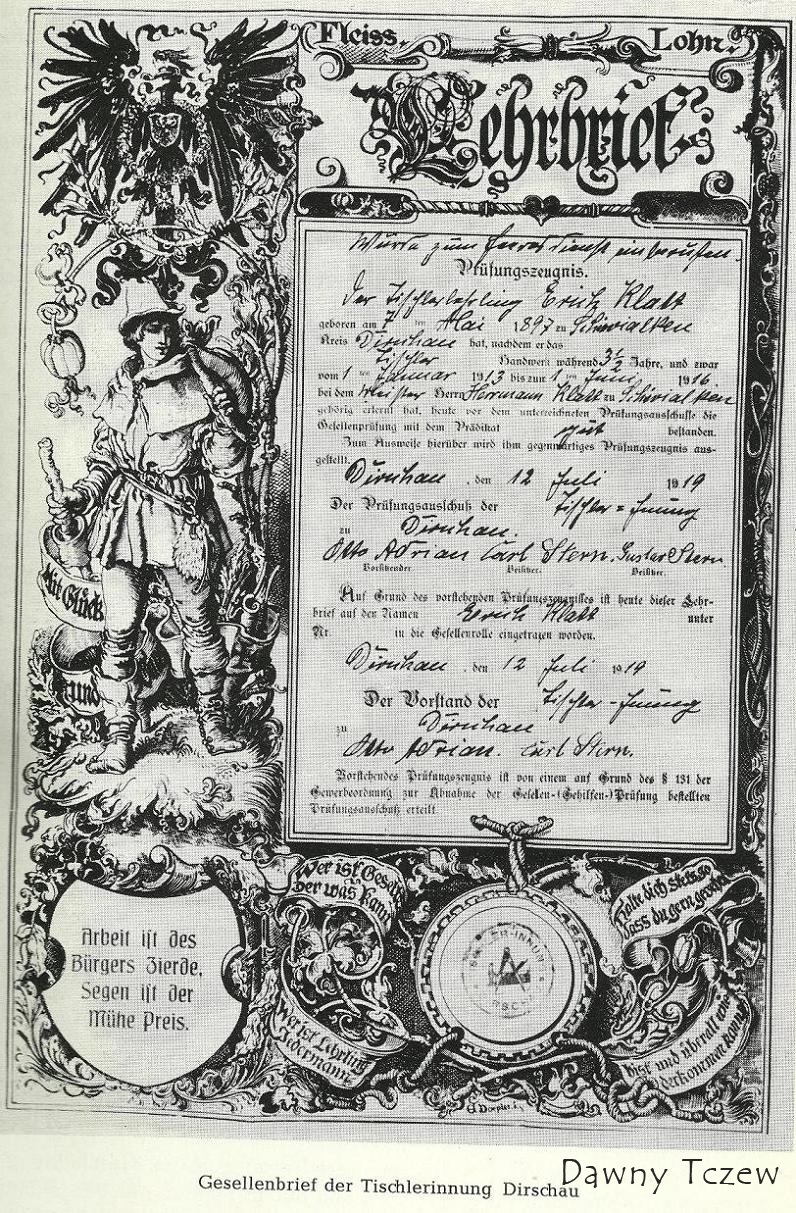 Fleiss. Lohn.
Lehrbrief
Wurde zum Heeresdienst einberufen.
Prüfungszeugnis.
Der Tischlerlehrling Erich Klatt
geboren am 7 ten Mai 1897 zu Schiwialken
Kreis Dirschau hat, nachdem er das
Tischler Handwerk während 3½ Jahre, und zwar
vom 1 ten Januar 1913 bis zum 1 ten Juni 1916
bei dem Meister Herrn Hermann Klatt zu Schiwialken
gehörig erlernt hat, heute vor dem unterzeichneten Prüfungsausschusse die
Gesellenprüfung mit dem Prädikat gut bestanden.
Zum Ausweise hierüber wird ihm gegenwärtiges Prüfungszeugnis aus-
gestellt.
Dirschau, den 12 Juli 1919
Der Prüfungsausschuß der Tischler=Innung
zu Dirschau.
Otto Adrian Carl Stern. Gustav Stern.
Vorsitzender Beisitzer. Beisitzer.
Auf Grund des vorstehenden Prüfungszeugnisses ist heute dieser Lehr-
brief auf den Namen Erich Klatt unter
Nr. in die Gesellenrolle eingetragen worden.
Dirschau, den 12 Juli 1919
Der Vorstand der Tischler-Innung
zu Dirschau
Otto Adrian. Carl Stern.
Vorstehendes Prüfungszeugnis ist von einem auf Grund des § 131 der
Gewerbeordnung zur Abnahme der Gesellen-(Gehilfen-)Prüfung bestellten
Prüfungsausschuß erteilt.
Mit Glück
und
Arbeit ist des
Bürgers Zierde,
Segen ist der
Mühe Preis.
Wer ist Gesell
Der was kann
Wer ist Lehrling
Jedermann
Halte dich stets so
dass du gern gesehn
bist und überall
wiederkommen kannst
E. Doepler
Gesellenbrief der Tischlerinnung Dirschau
Dawny Tczew